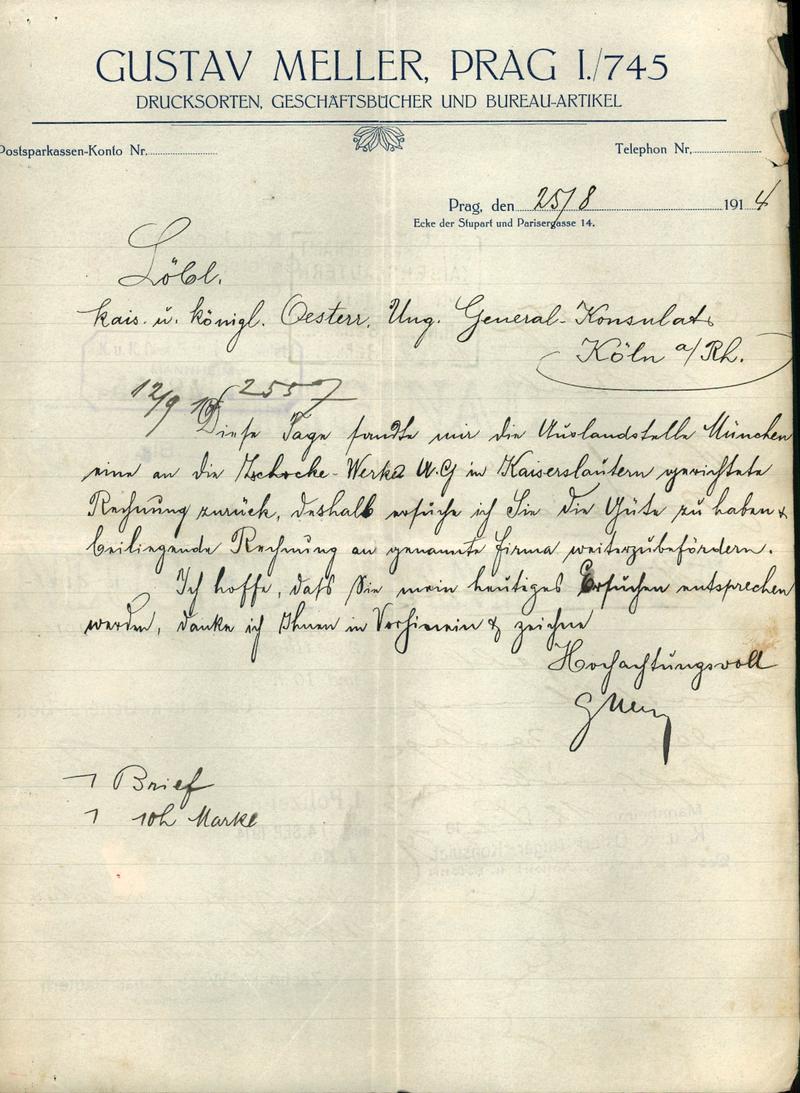 GUSTAV MELLER, PRAG I./745
DRUCKSORTEN, GESCHÄFTSBÜCHER UND BUREAU-ARTIKEL
Postsparkassen-Konto Nr. Telephon Nr.
Prag, den 25/8 1914
Ecke der Stupart und Parisergasse 14.
Löbl.
kais. u. königl. Oesterr. Ung. General-Konsulat
Köln a/Rh.
12/9 2557
Diese Tage sandte mir die Auslandstelle München
eine an die Zschocke-Werke A.G in Kaiserslautern gerichtete
Rechnung zurück, deshalb ersuche ich Sie die Güte zu haben &
beiliegende Rechnung an genannte Firma weiterzubefördern.
Ich hoffe, daß Sie mein heutiges Ersuchen entsprechen
werden, danke ich Ihnen im Vorhinein & zeichne
Hochachtungsvoll
1 Brief
1 10h Marke